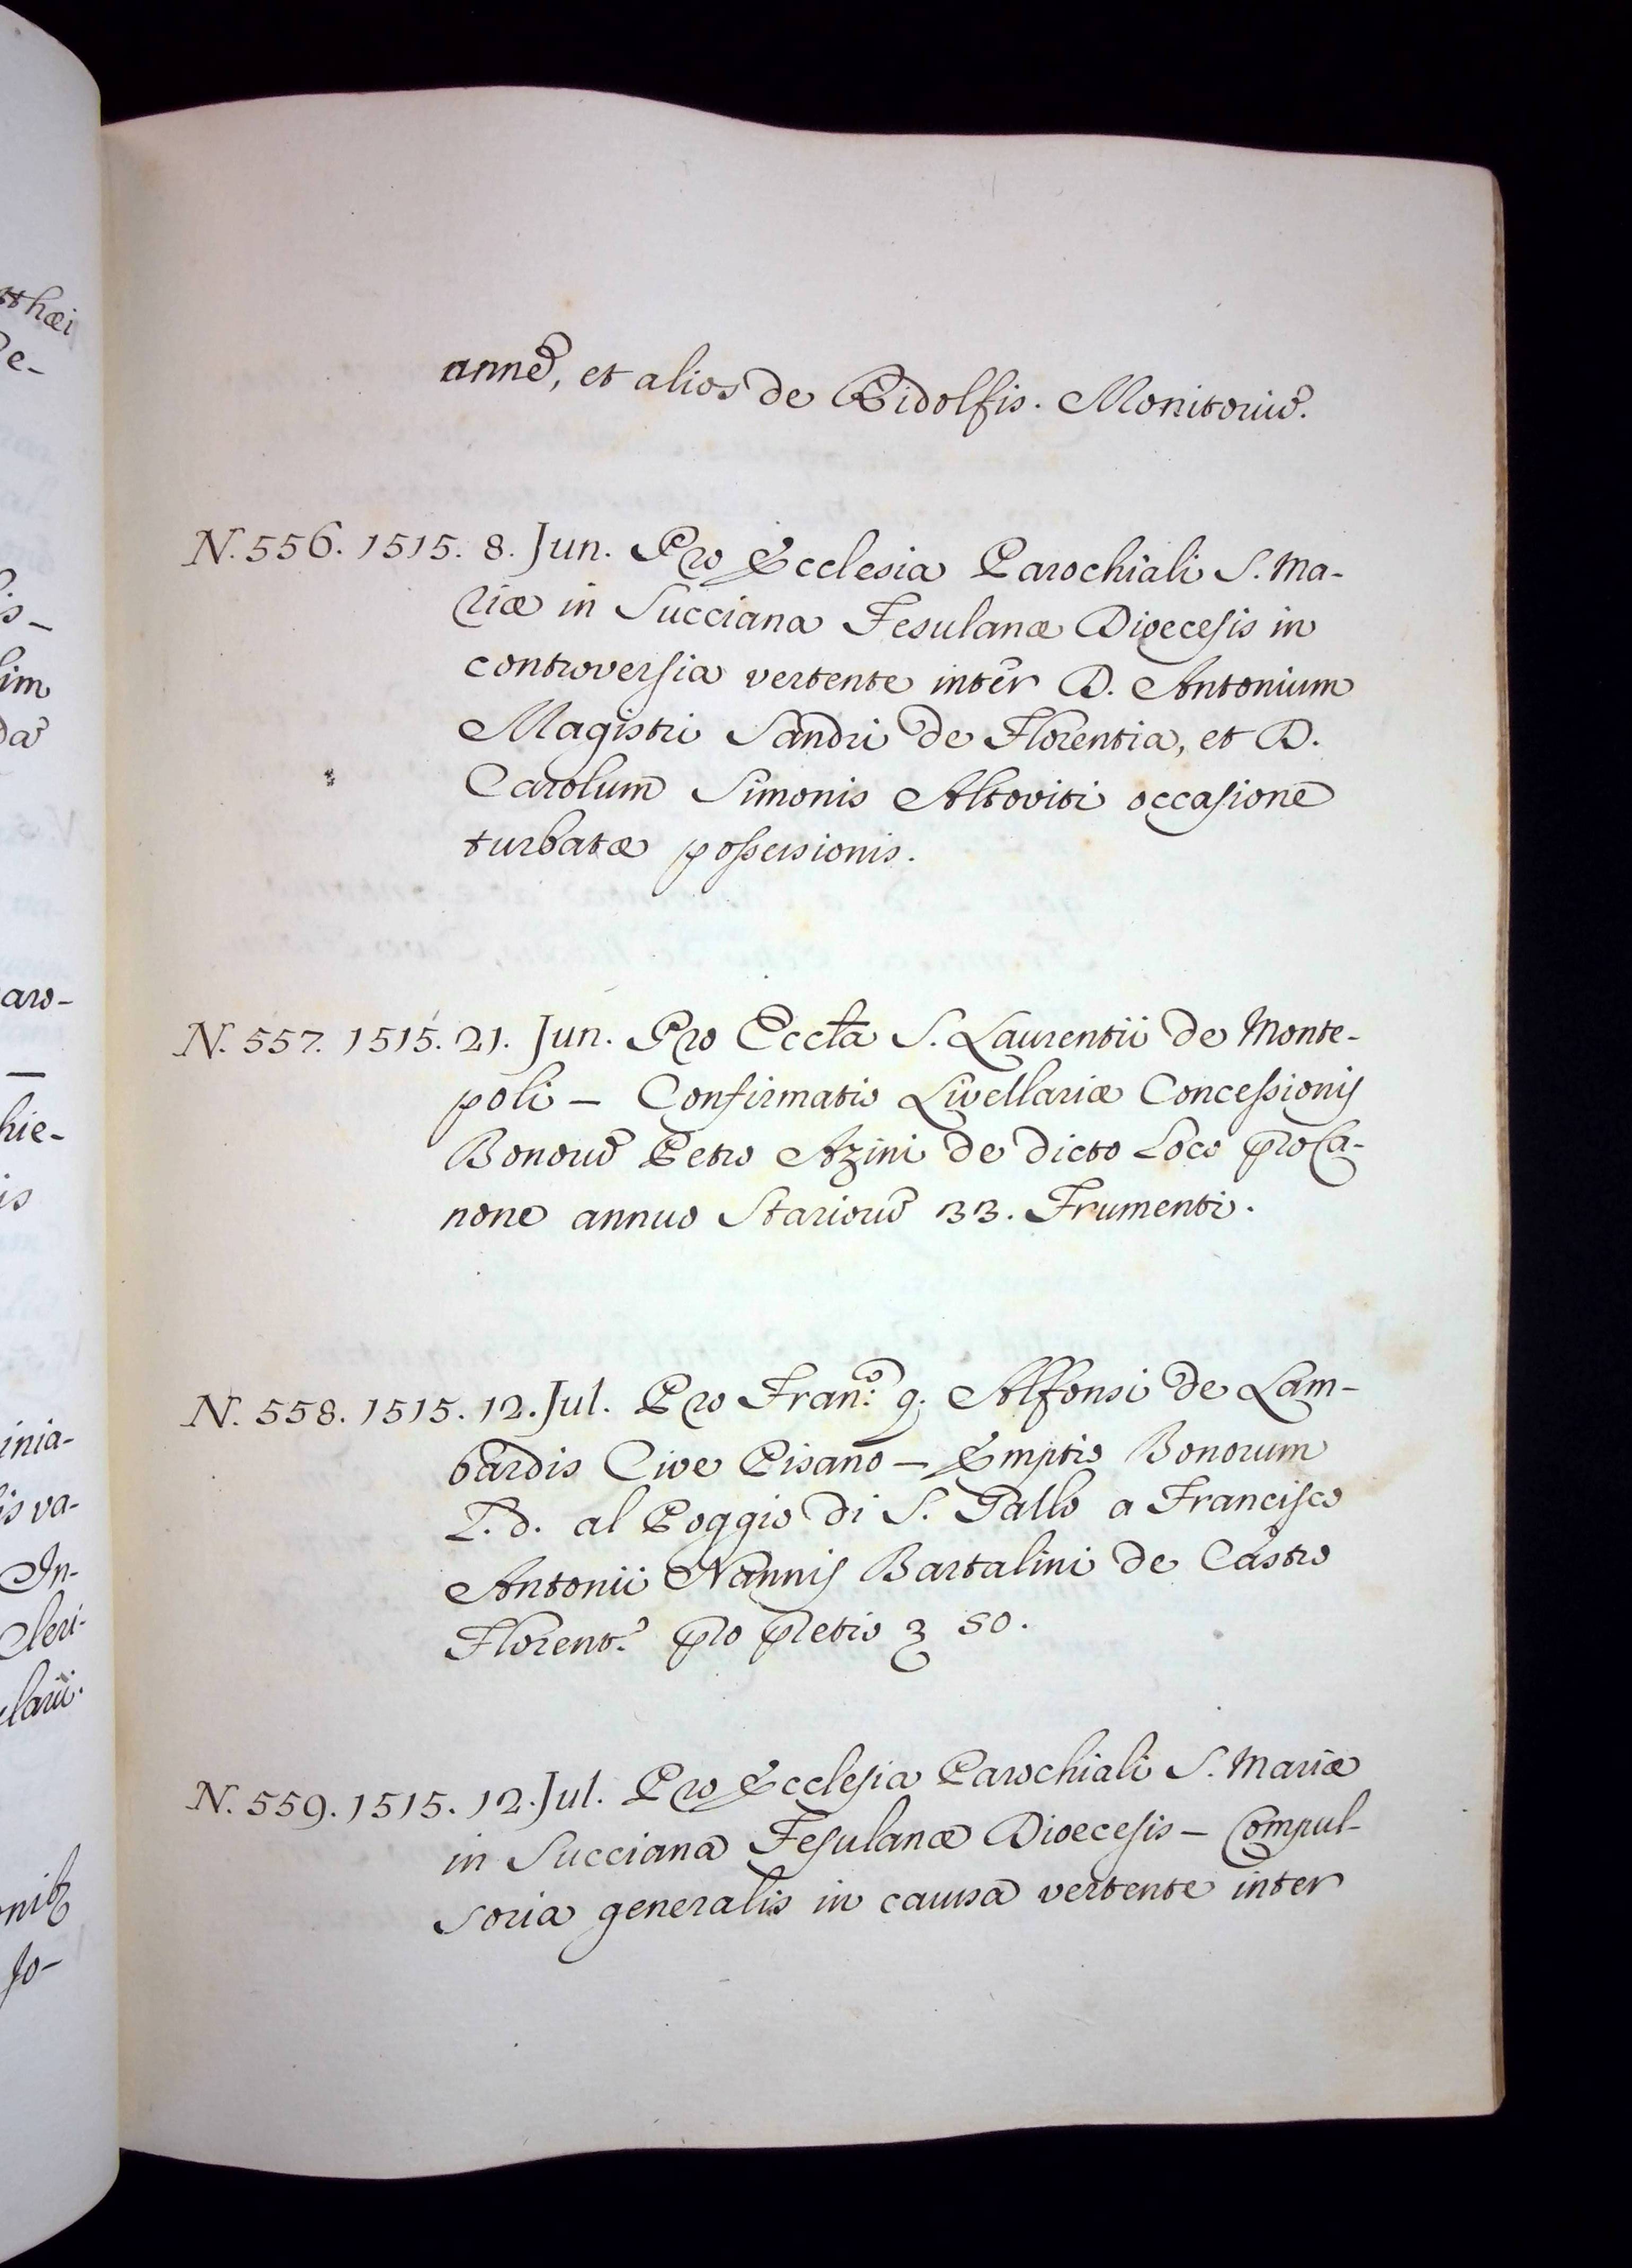 anne᷈, et alios de Ridolfis. Monitoriu᷈.
N. 556. 1515. 8. Jun. Pro Ecclesia Parochiali S. Ma-
riæ in Succiana Fesulanæ Dioecesis in
controversia vertente inter D. Antonium
Magistri Sandri de Florentia, et D.
Carolum Simonis Altoviti occasione
turbatæ possessionis.
N. 557. 1515. 21. Jun. Pro Eccła S. Laurentii de Monte-
poli – Confirmatio Livellariæ Concessionis
Bonoru᷈ Petro Azini de dicto Loco pro Ca-
none annuo Starioru᷈ 33. Frumenti.
N. 558. 1515. 12. Jul. Pro Fran:º q. Alfonsi de Lam-
bardis Cive Pisano – Emptio Bonorum
L. d. al Poggio di S. Gallo a Francisco
Antonii Nannis Bartalini de Castro
Florent.º pro pretio 50.
N. 559. 1515. 12. Jul. Pro Ecclesia Parochiali S. Mariæ
in Succiana Fesulanæ Dioecesis – Compul-
soria generalis in causa vertente inter